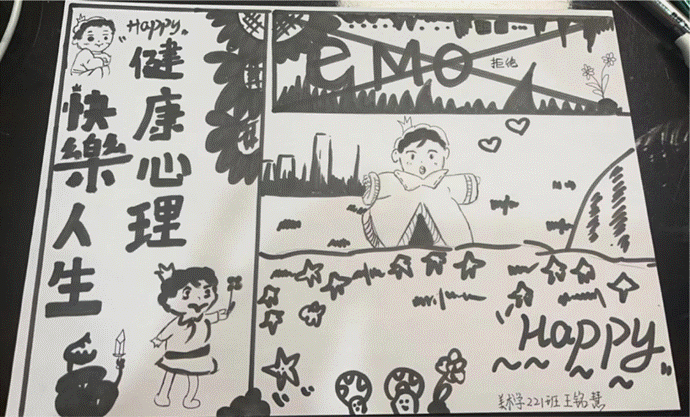 "Happy"
健康心理
快樂人生
EMO
拒绝
Happy
美术学221班 王铭慧